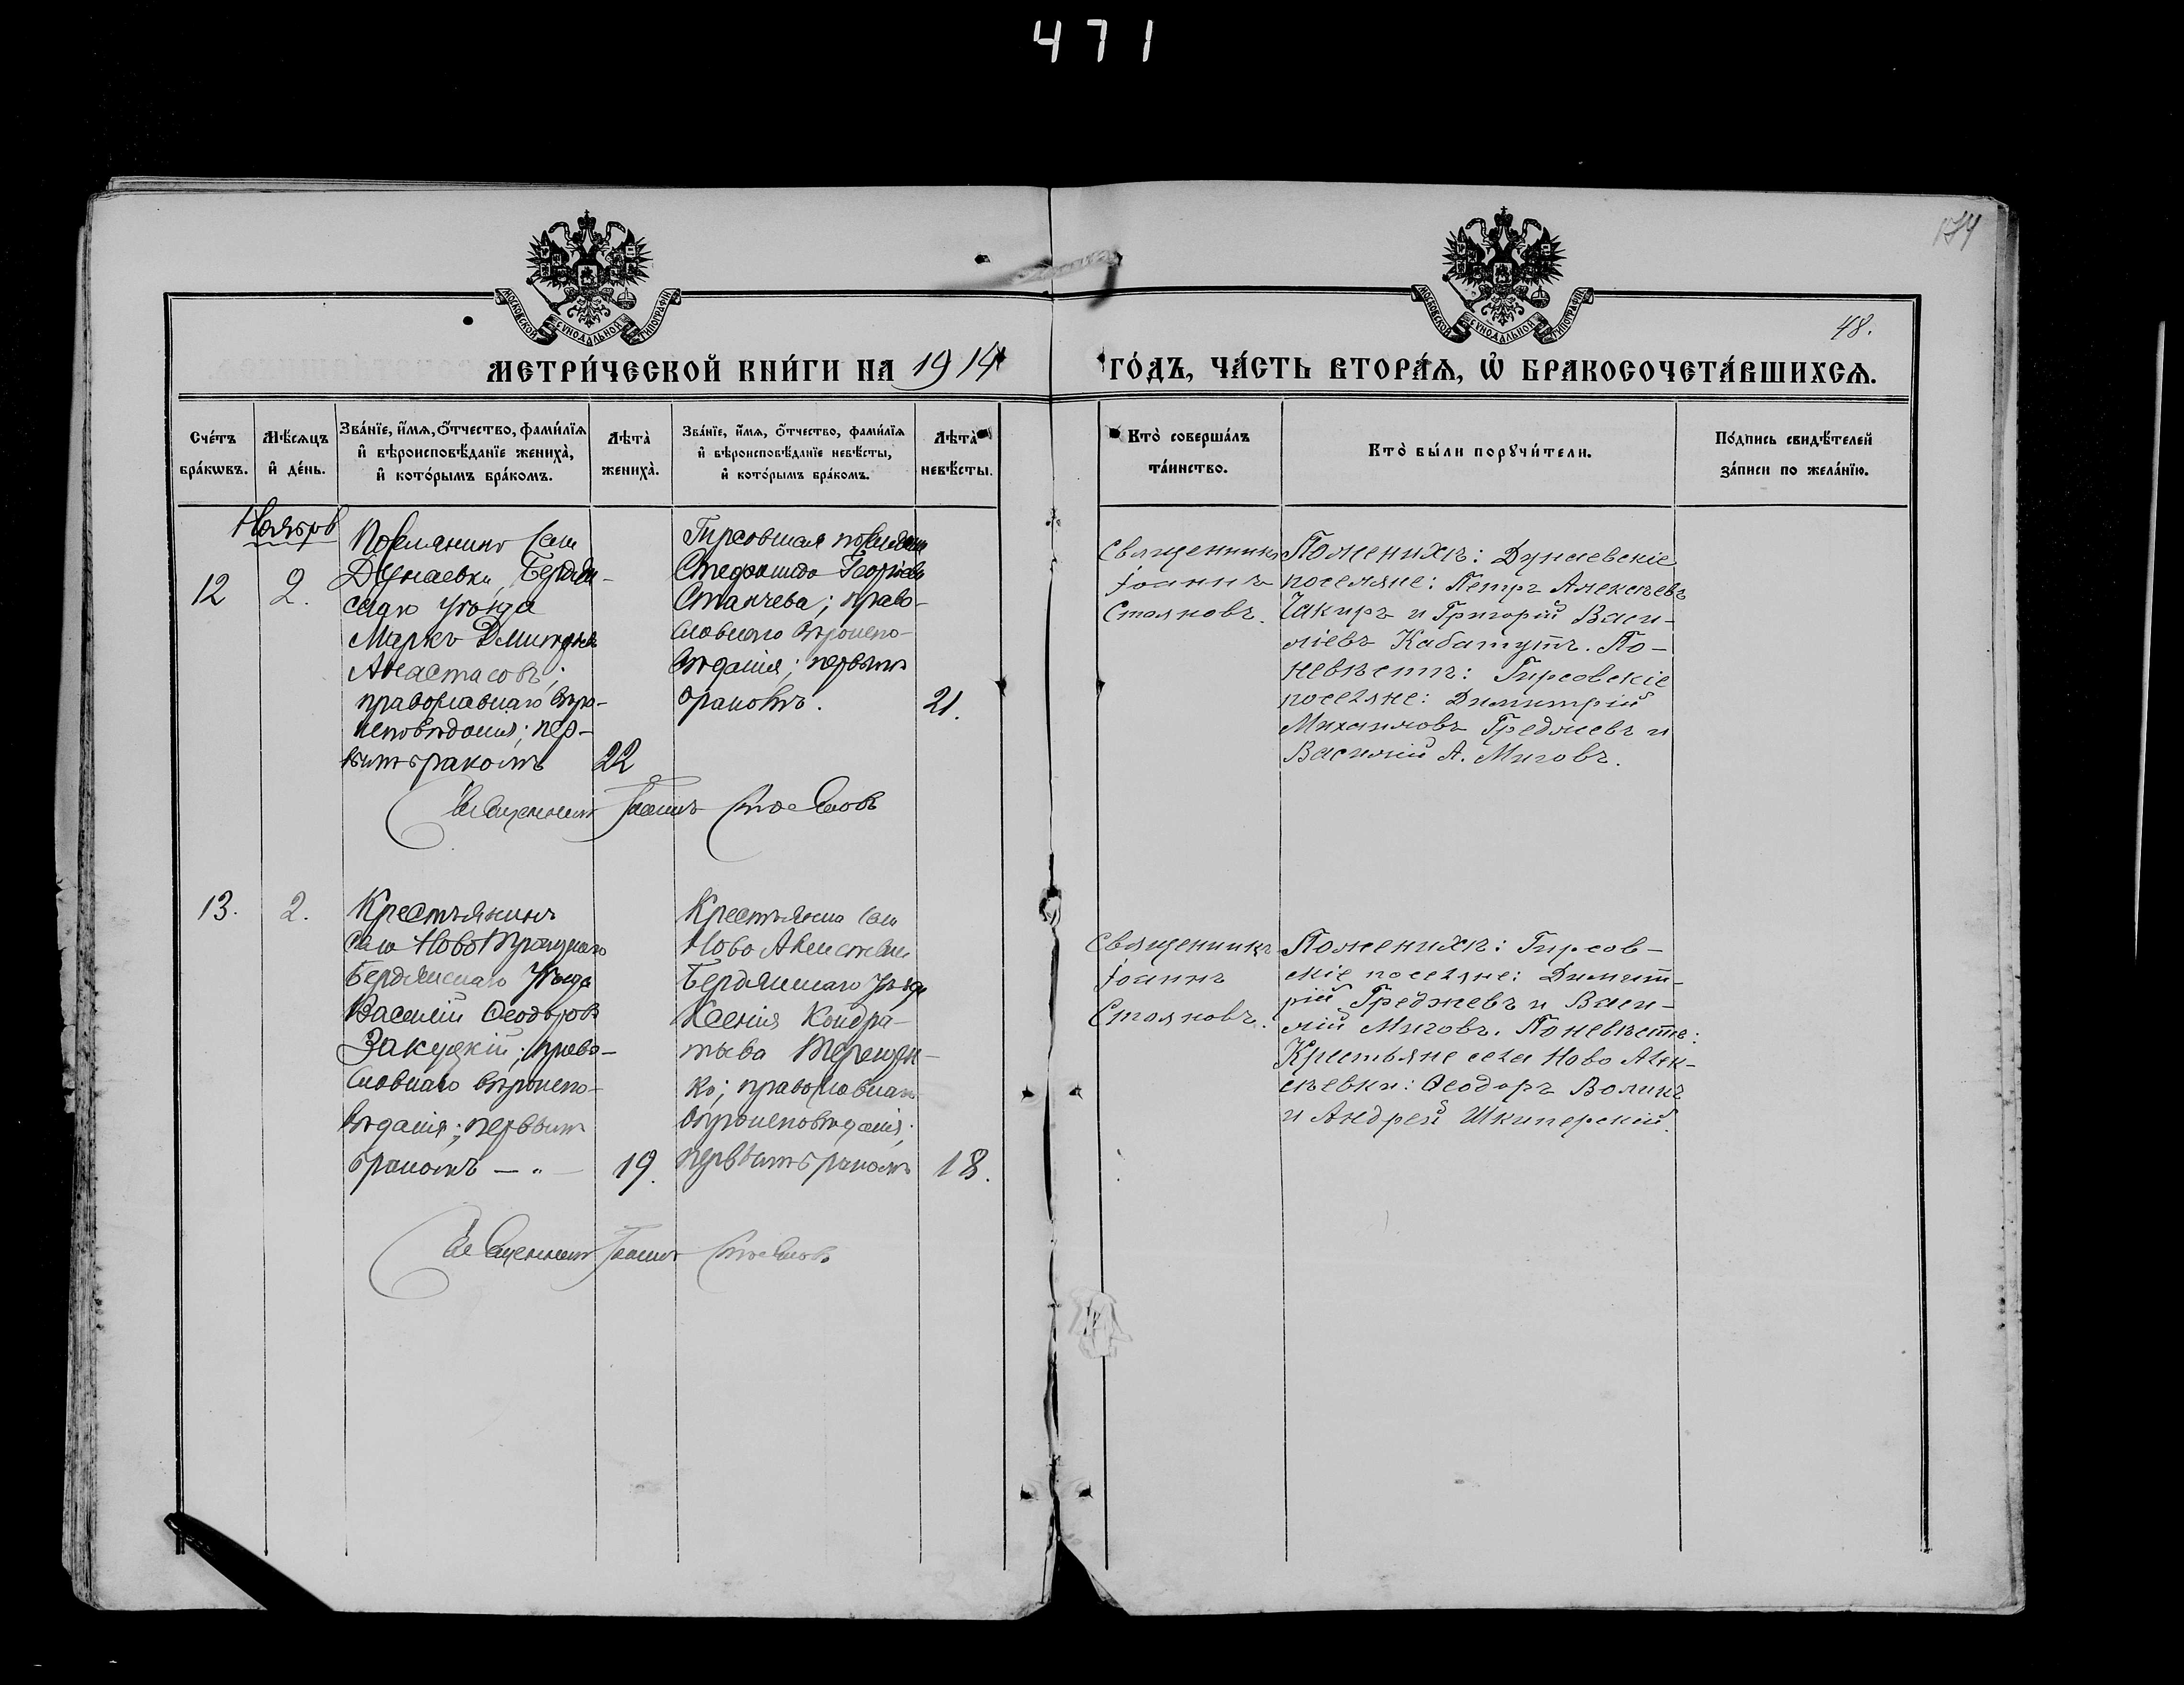 471
184
МОСКОВСКОЙ СѴНОДАЛЬНОЙ ТИПОГРАФІИ
МОСКОВСКОЙ СѴНОДАЛЬНОЙ ТИПОГРАФІИ
48.
МЕТРИ́ЧЕСКОЙ КНИ́ГИ НА 1914 ГО́ДЪ, ЧА́СТЬ ВТОРА́Ѧ, Ѡ҆ БРАКОСОЧЕТА́ВШИХСѦ.
Сче́тъ бра́кѡвъ.
Мѣ́сяцъ и҆ де́нь.
Зва́нїе, и҆́мѧ, ѻ҆́тчество, фами́лїѧ и҆ вѣроисповѣ́данїе жениха̀, и҆ кото́рымъ бра́комъ.
Лѣ́та̀ жениха̀.
Зва́нїе, и҆́мѧ, ѻ҆́тчество, фами́лїѧ и҆ вѣроисповѣ́данїе невѣ́сты, и҆ кото́рымъ бра́комъ.
Лѣ́та̀ невѣ́сты.
Кто̀ соверша́лъ та́инство.
Кто̀ бы́ли порꙋчи́тели.
По́дпись свидѣ́телей за́писи по жела́нїю.
Ноябрь
12
2.
Поселянинъ села
Дунаевки, Бердян-
скаго уѣзда
Марко Дмитріевъ
Анастасовъ;
православнаго вѣро-
исповѣданія; пер-
вымъ бракомъ
22
Гирсовская поселянка
Стефанида Георгіева
Станчева; право-
славнаго вѣроиспо-
вѣданія; первымъ
бракомъ.
21.
Священникъ
Іоаннъ
Стояновъ.
По женихѣ: Дунаевскіе
поселяне: Петръ Алексѣевъ
Чакиръ и Григорій Васи-
ліевъ Кабатутъ. По-
невѣстѣ: Гирсовскіе
поселяне: Димитрій
Михаиловъ Греджевъ и
Василій А. Миговъ.
Священникъ Іоаннъ Стояновъ
13.
2.
Крестьянинъ
села НовоТроицкаго
Бердянскаго Уѣзда
Василій Ѳеодоровъ
Закуцкій; право-
славнаго вѣроиспо-
вѣданія; первымъ
бракомъ — „ —
19.
Крестьянка села
Ново Алексѣевки
Бердянскаго Уѣзда
Ксенія Кондра-
тьева Терещен-
ко; православнаго
вѣроисповѣданія;
первымъ бракомъ
18.
Священникъ
Іоаннъ
Стояновъ.
По женихѣ: Гирсов-
скіе поселяне: Димит-
рій Греджевъ и Васи-
лій Миговъ. По невѣстѣ:
Крестьяне села Ново Алек-
сѣевки: Ѳеодоръ Волинъ
и Андрей Шкиперскій.
Священникъ Іоаннъ Стояновъ